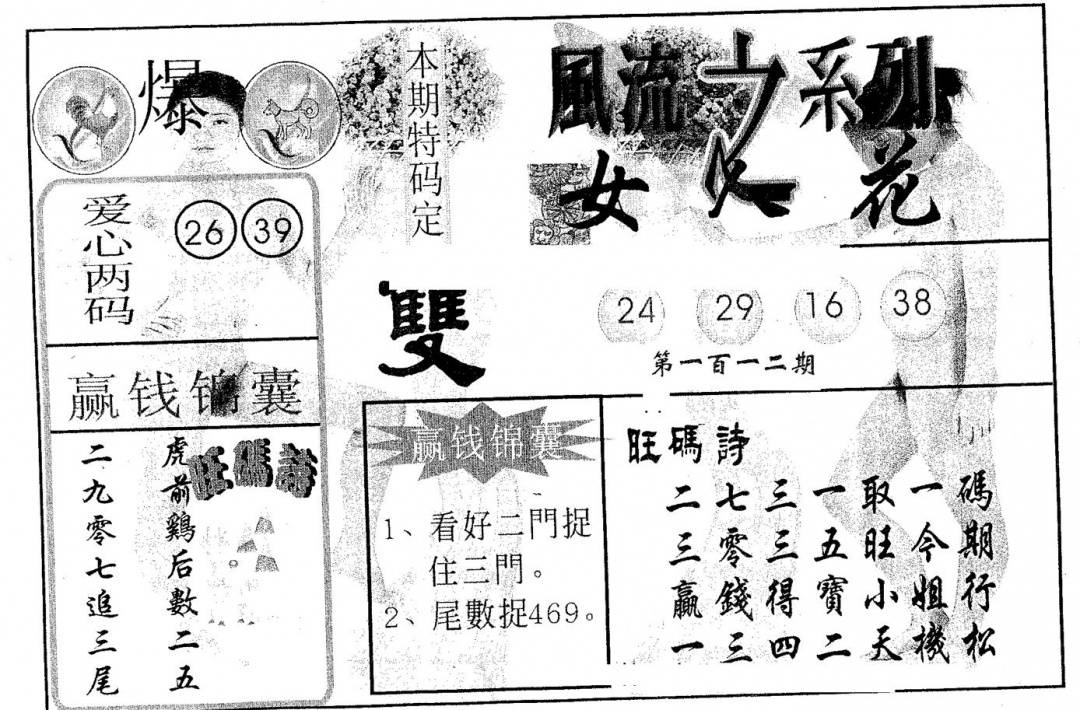 爆
本期特码定
雙
風流之系列
女人花
爱心两码
26 39
24 29 16 38
第一百一二期
赢钱锦囊
旺碼詩
虎前鷄后數二五
二九零七追三尾
赢钱锦囊
1、看好二門捉
住三門。
2、尾數捉469。
旺碼詩
二七三一取一碼
三零三五旺今期
贏錢得寶小姐行
一三四二天機松